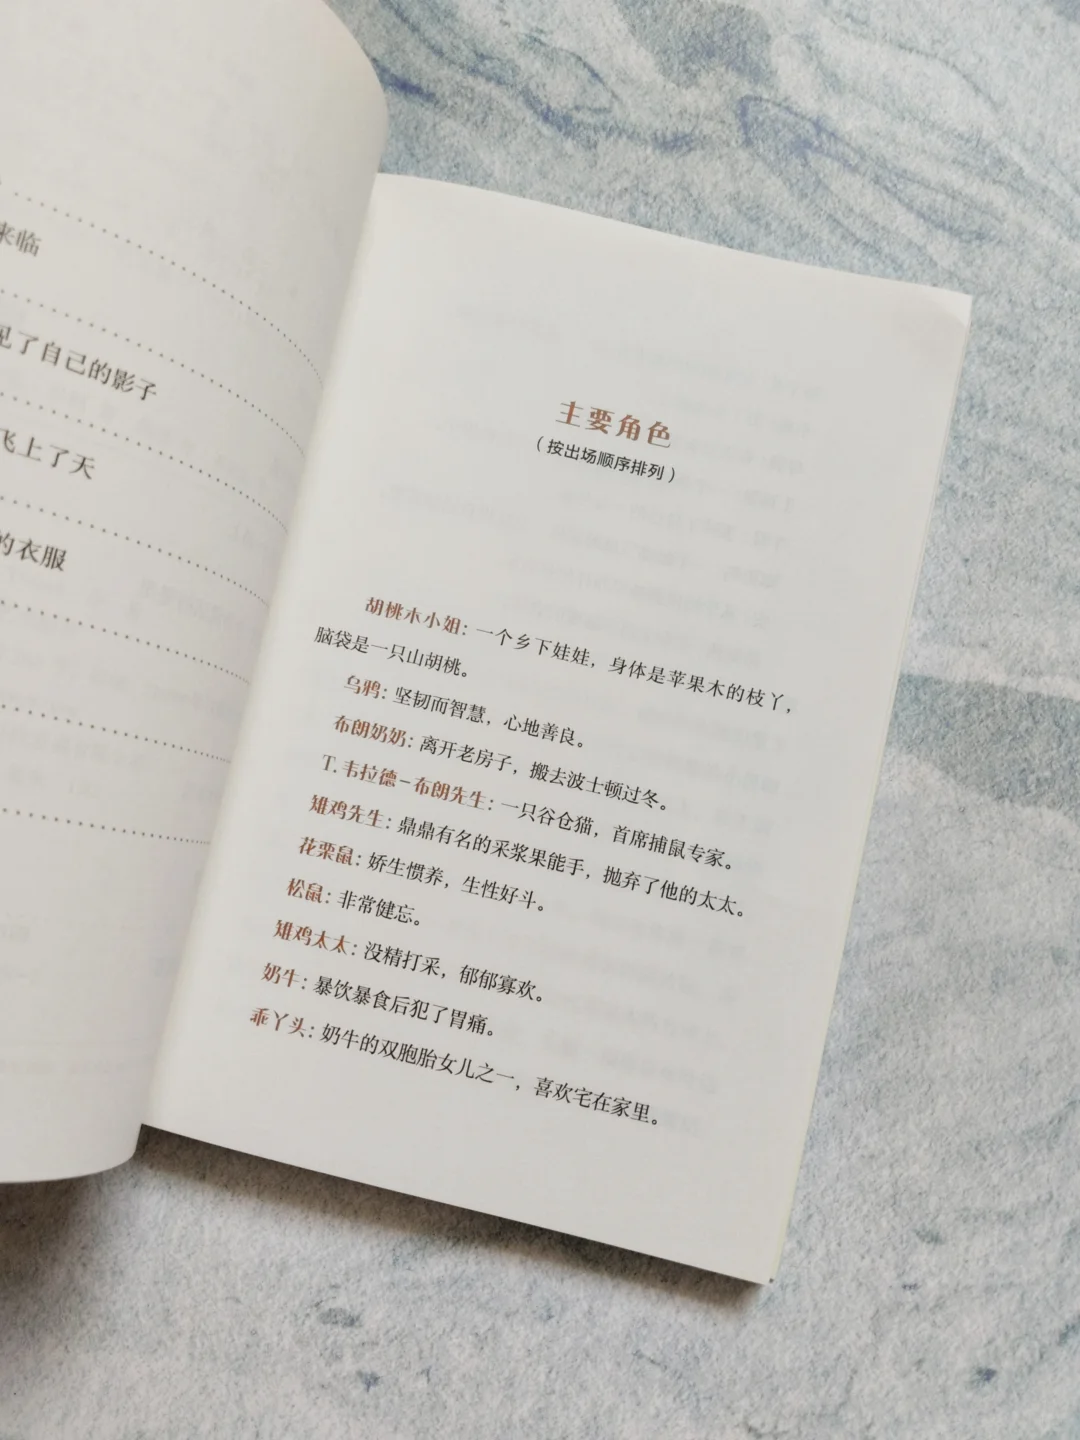 来临
见了自己的影子
飞上了天
的衣服
主要角色
（按出场顺序排列）
胡桃木小姐：一个乡下娃娃，身体是苹果木的枝丫，
脑袋是一只山胡桃。
乌鸦：坚韧而智慧，心地善良。
布朗奶奶：离开老房子，搬去波士顿过冬。
T.韦拉德-布朗先生：一只谷仓猫，首席捕鼠专家。
雉鸡先生：鼎鼎有名的采浆果能手，抛弃了他的太太。
花栗鼠：娇生惯养，生性好斗。
松鼠：非常健忘。
雉鸡太太：没精打采，郁郁寡欢。
奶牛：暴饮暴食后犯了胃痛。
乖丫头：奶牛的双胞胎女儿之一，喜欢宅在家里。